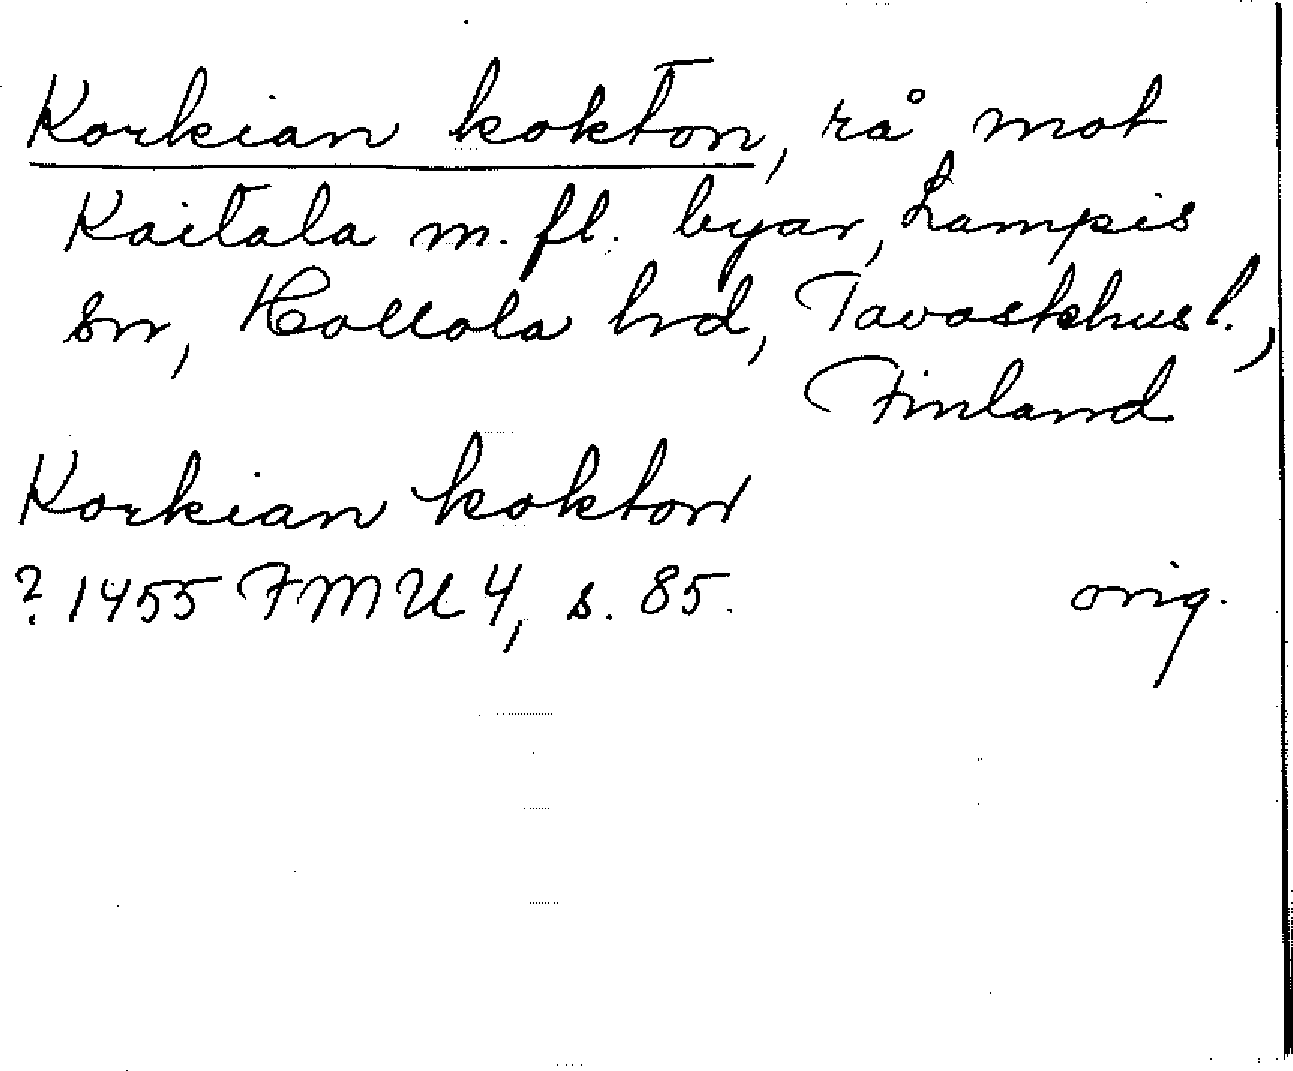 Korkian kokton, rå mot
Kaitala m. fl. byar, Lampis
sn, Hollola hrd, Tavastehus l.,
Finland
Korkian kokton
? 1455 FMU 4, s. 85. orig.